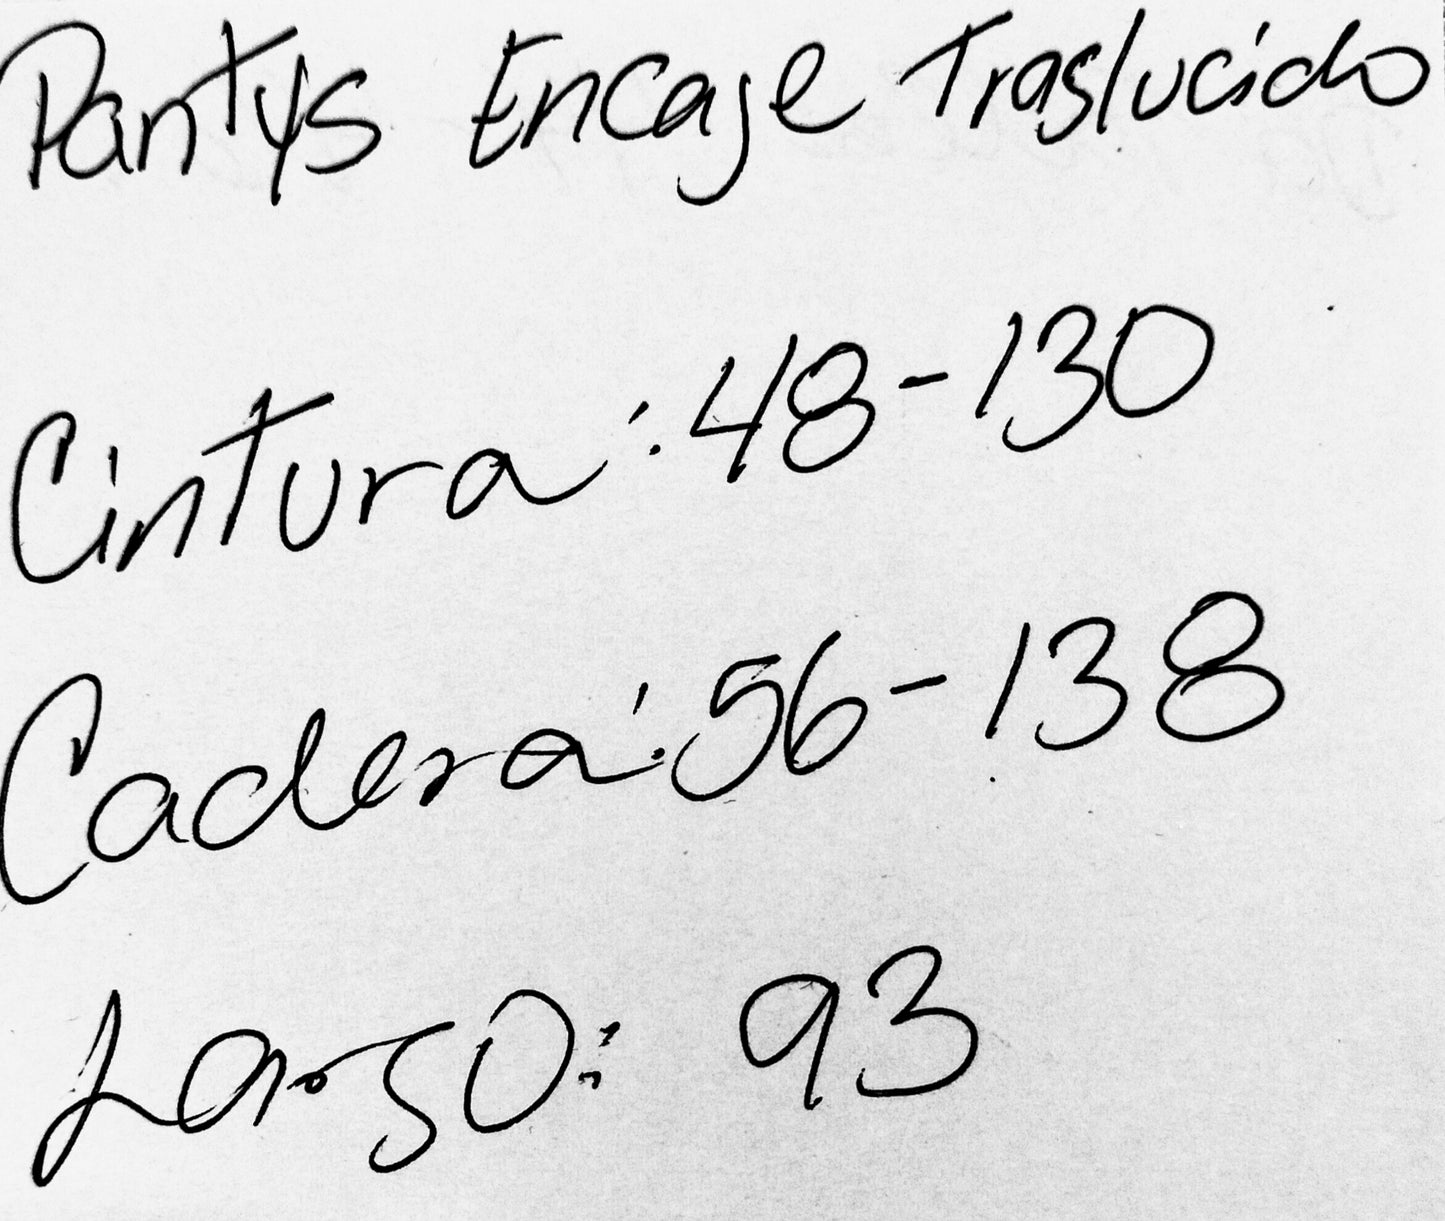 Pantys Encaje Traslucido
Cintura: 48-130
Cadera: 56-138
Largo: 93